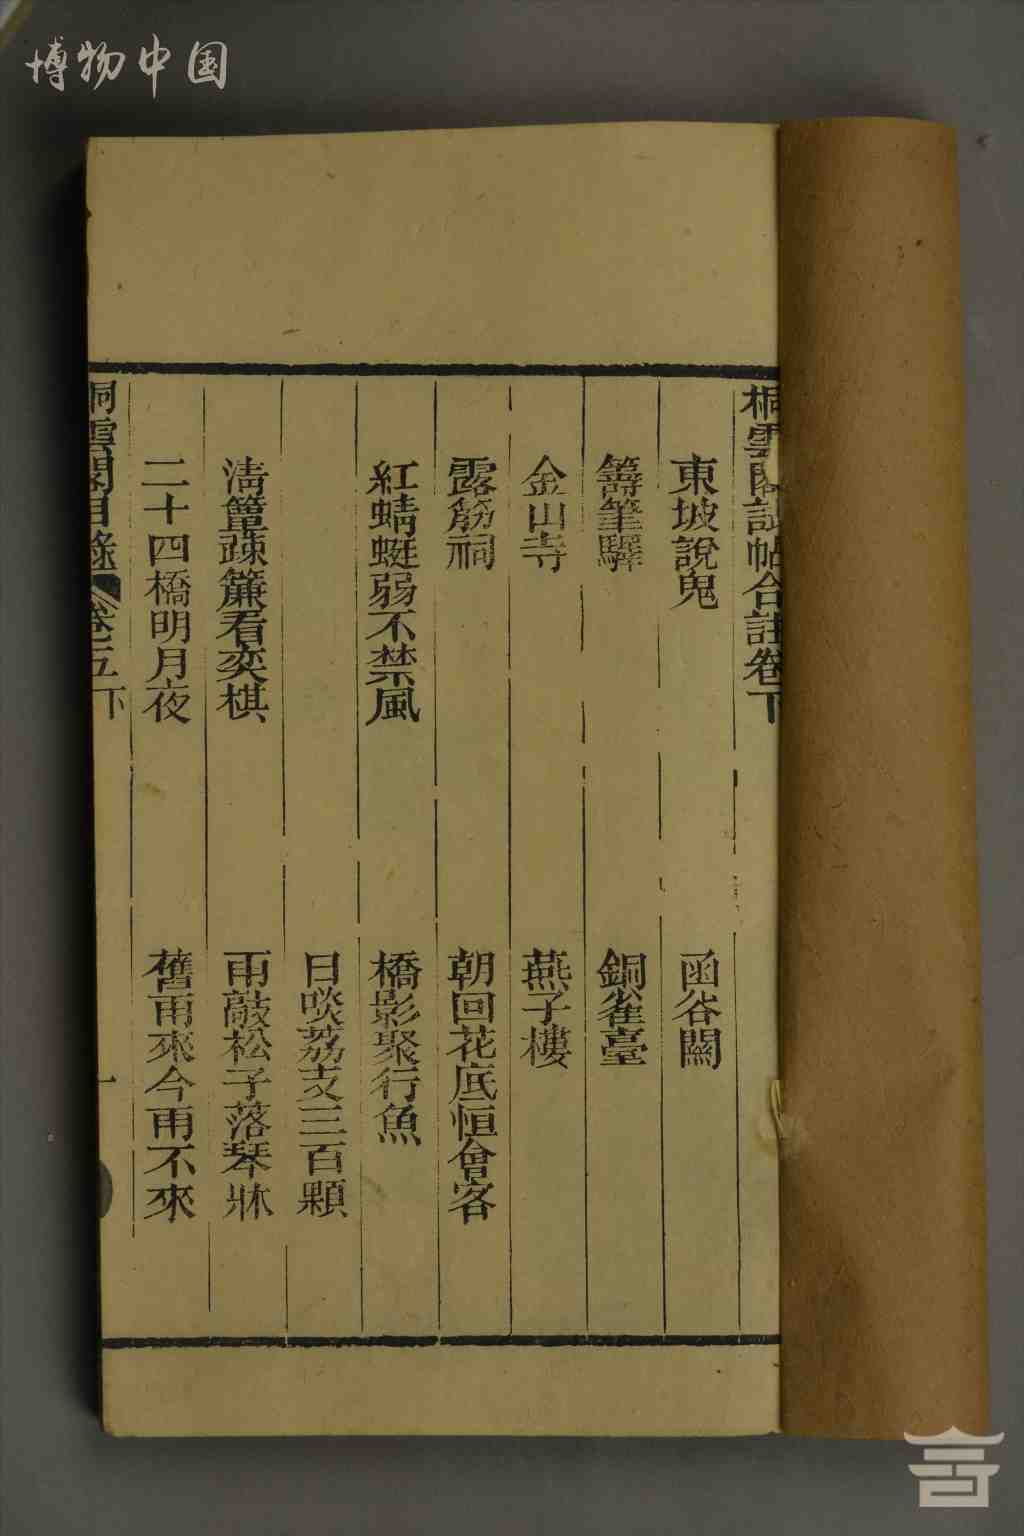 博物中国
桐雲閣試帖合註卷下
東坡說鬼 函谷關
籌筆驛 銅雀臺
金山寺 燕子樓
露筋祠 朝回花底恒會客
紅蜻蜓弱不禁風 橋影聚行魚
日啖荔支三百顆
清簟疎簾看奕棋 雨敲松子落琴牀
二十四橋明月夜 舊雨來今雨不來
桐雲閣目錄 卷五下 一